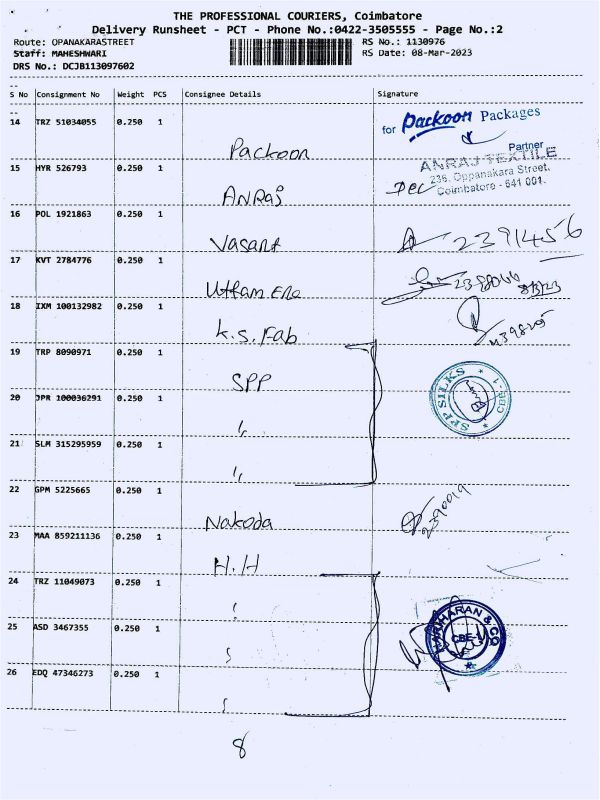 THE PROFESSIONAL COURIERS, Coimbatore
Delivery Runsheet - PCT - Phone No.:0422-3505555 - Page No.:2
Route: OPANAKARASTREET RS No.: 1130976
Staff: MAHESHWARI RS Date: 08-Mar-2023
DRS No.: DCJB113097602
S No Consignment No Weight PCS Consignee Details Signature
14 TRZ 51034055 0.250 1 Packoon for Packoon Packages
Partner
15 HYR 526793 0.250 1 ANRAJ ANRAJ TEXTILE
236, Oppanakara Street,
Coimbatore - 641 001.
16 POL 1921863 0.250 1 Vasant 2391456
17 KVT 2784776 0.250 1 Uttam Ene
18 IXM 100132982 0.250 1 K.S. Fab
19 TRP 8090971 0.250 1 SPP
20 JPR 100036291 0.250 1 " SPP SILKS CBE-1
21 SLM 315295959 0.250 1 "
22 GPM 5225665 0.250 1 Nakoda
23 MAA 859211136 0.250 1 H.H
24 TRZ 11049073 0.250 1
25 ASD 3467355 0.250 1 HARIHARAN & CO CBE-1
26 EDQ 47346273 0.250 1
8